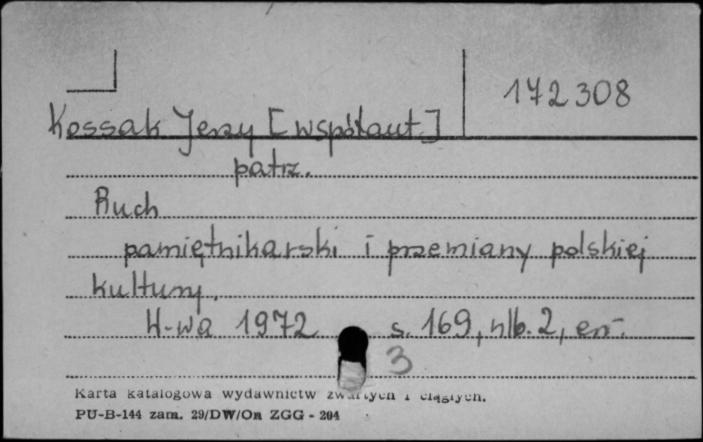 172308
Kossak Jerzy [współaut.]
patrz.
Ruch
pamiętnikarski i przemiany polskiej
kultury.
W-wa 1972 s. 169, nlb. 2, err.
3
Karta katalogowa wydawnictw zwartych i ciągłych.
PU-B-144 zam. 29/DW/On ZGG - 204